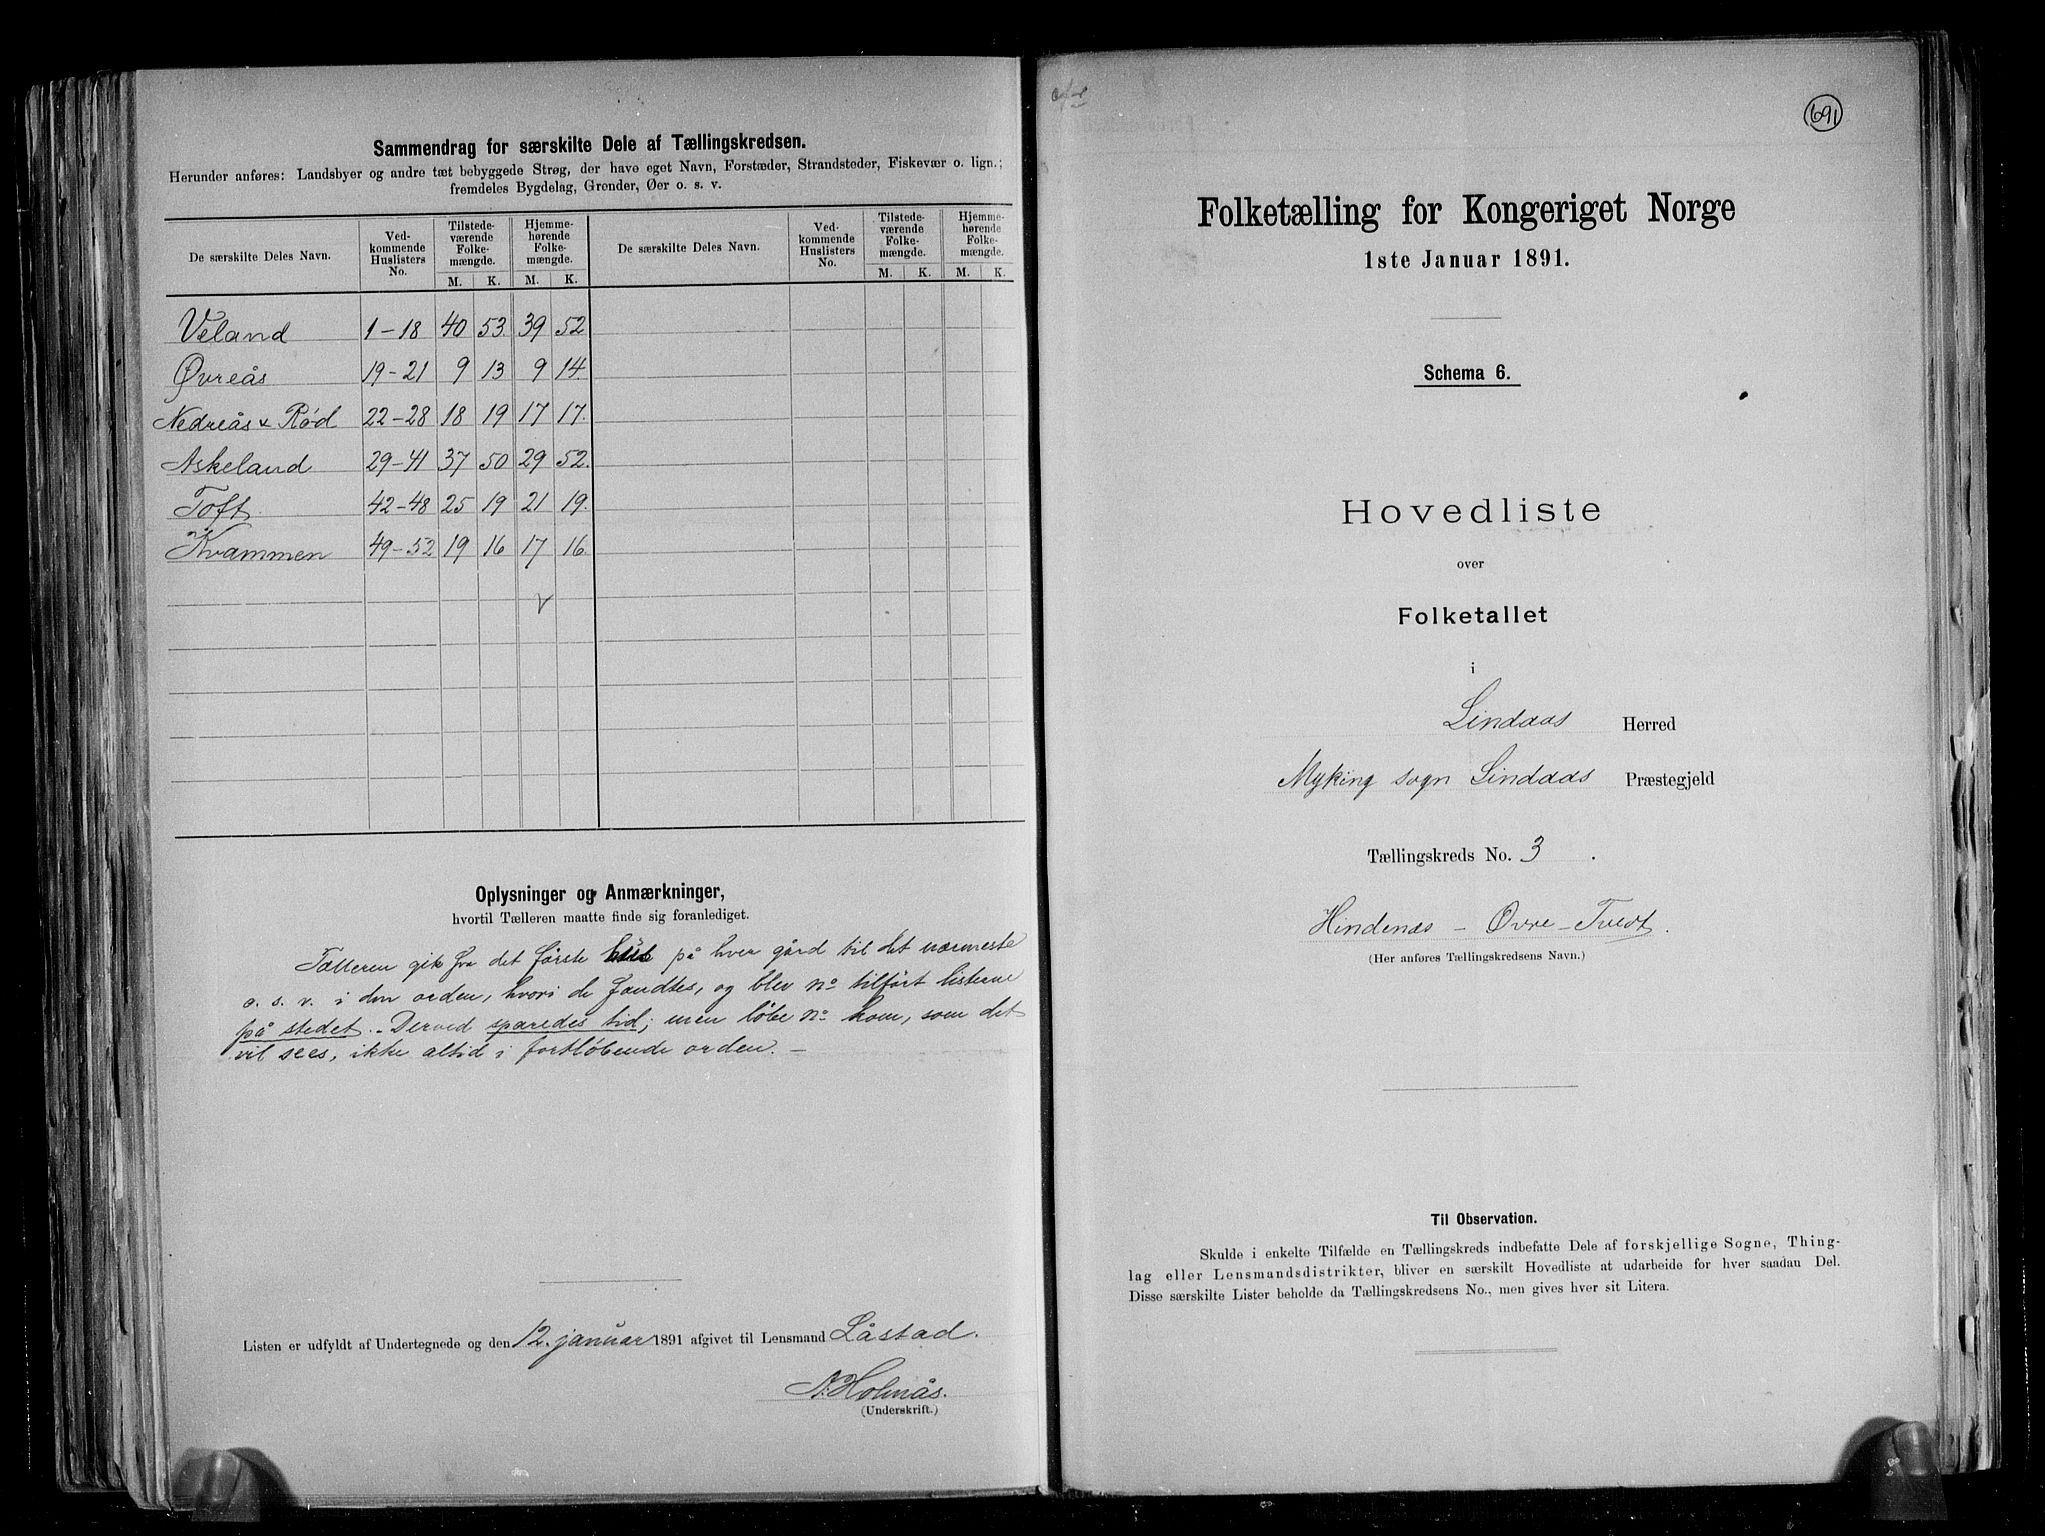 Sammendrag for særskilte Dele af Tællingskredsen.
Herunder anføres: Landsbyer og andre tæt bebyggede Strøg, der have eget Navn, Forstæder, Strandsteder, Fiskevær o. lign.;
fremdeles Bygdelag, Grender, Øer o. s. v.
De særskilte Deles Navn. Ved-kommende Huslisters No. Tilstede-værende Folke-mængde. Hjemme-hørende Folke-mængde. De særskilte Deles Navn. Ved-kommende Huslisters No. Tilstede-værende Folke-mængde. Hjemme-hørende Folke-mængde.
M. K. M. K. M. K. M. K.
Veland 1-18 40 53 39 52
Øvreås 19-21 9 13 9 14
Nedreås & Rød 22-28 18 19 17 17.
Askeland 29-41 37 50 29 52.
Toft 42-48 25 19 21 19.
Kvammen 49-52 19 16 17 16
Oplysninger og Anmærkninger,
hvortil Tælleren maatte finde sig foranlediget.
Tælleren gik fra det første hus på hver gård til det nærmeste
o. s. v. i den orden, hvori de fandtes, og blev no tilført listerne
på stedet. - Derved sparedes tid; men løbe no kom, som det
vil sees, ikke altid i fortløbende orden. -
Listen er udfyldt af Undertegnede og den 12. januar 1891 afgivet til Lensmand Låstad.
A. Holmås.
(Underskrift.)
691
Folketælling for Kongeriget Norge
1ste Januar 1891.
Schema 6.
Hovedliste
over
Folketallet
i
Lindaas Herred
Myking sogn Lindaas Præstegjeld
Tællingskreds No. 3.
Hindenes - Øvre-Tvedt.
(Her anføres Tællingskredsens Navn.)
Til Observation.
Skulde i enkelte Tilfælde en Tællingskreds indbefatte Dele af forskjellige Sogne, Thing-
lag eller Lensmandsdistrikter, bliver en særskilt Hovedliste at udarbeide for hver saadan Del.
Disse særskilte Lister beholde da Tællingskredsens No., men gives hver sit Litera.